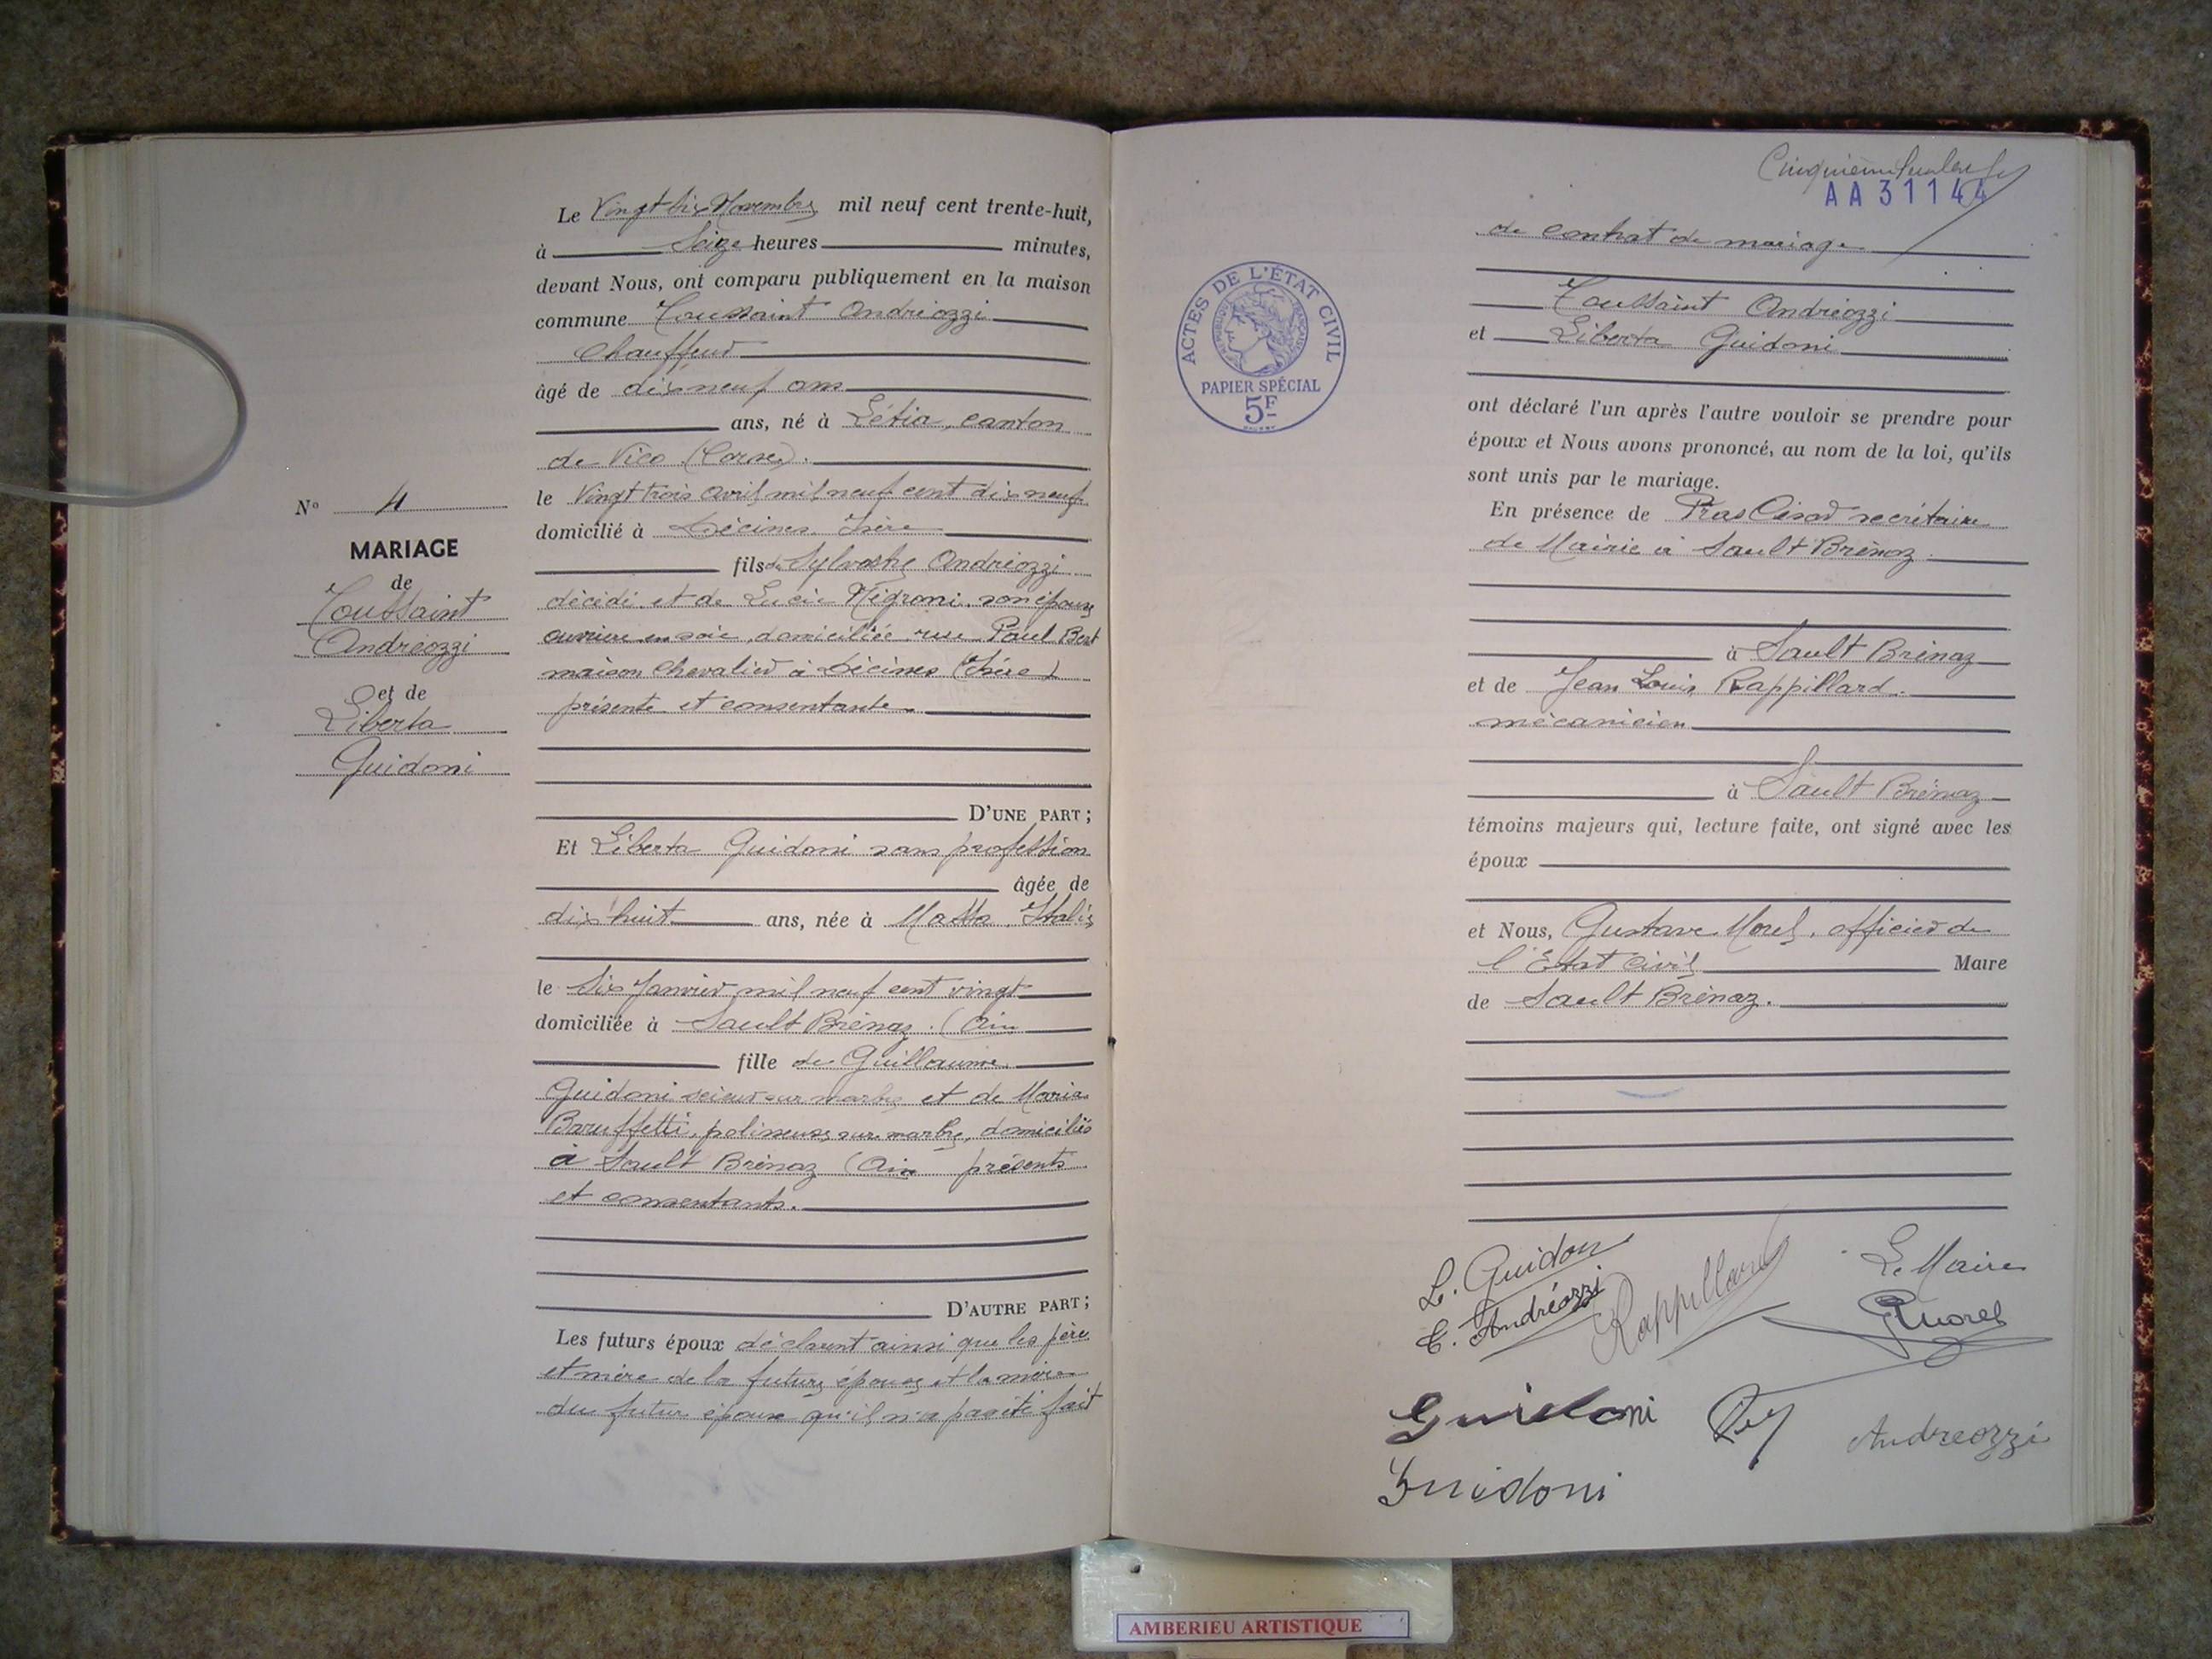 N° 4
MARIAGE
de
Toussaint
Andréozzi
et de
Liberta
Guidoni
Le Vingt six Novembre mil neuf cent trente-huit,
à Seize heures minutes,
devant Nous, ont comparu publiquement en la maison
commune Toussaint Andréozzi
Chauffeur
âgé de dix neuf ans
ans, né à Létia, canton
de Vico (Corse).
le Vingt trois avril mil neuf cent dix neuf
domicilié à Décines Isère
fils de Sylvestre Andréozzi
décédé et de Lucie Négroni, son épouse
ouvrière en soie, domiciliée rue Paul Bert
maison Chevalier à Décines (Isère)
présente et consentante.
D'UNE PART ;
Et Liberta Guidoni sans profession
âgée de
dix huit ans, née à Massa Italie
le Six Janvier mil neuf cent vingt
domiciliée à Sault Brénaz. (Ain
fille de Guillaume
Guidoni scieur sur marbre et de Maria
Baruffetti, polisseuse sur marbre, domiciliés
à Sault Brénaz (Ain présents
et consentants.
D'AUTRE PART ;
Les futurs époux déclarent ainsi que les père
et mère de la future épouse et la mère
du futur époux qu'il n'a pas été fait
Cinquième
AA31144
de contrat de mariage
ACTES DE L'ÉTAT CIVIL
PAPIER SPÉCIAL
5F
Toussaint Andréozzi
et Liberta Guidoni
ont déclaré l'un après l'autre vouloir se prendre pour
époux et Nous avons prononcé, au nom de la loi, qu'ils
sont unis par le mariage.
En présence de Pras secrétaire
de Mairie à Sault Brénaz.
à Sault Brénaz
et de Jean Louis Rappillard.
mécanicien
à Sault Brénaz
témoins majeurs qui, lecture faite, ont signé avec les
époux
et Nous, Gustave Morel, officier de
l'Etat Civil Maire
de Sault Brénaz.
L. Guidoni
Le Maire
T. Andréozzi
Rappillard
GMorel
Guidoni
Andreozzi
Guidoni
AMBERIEU ARTISTIQUE